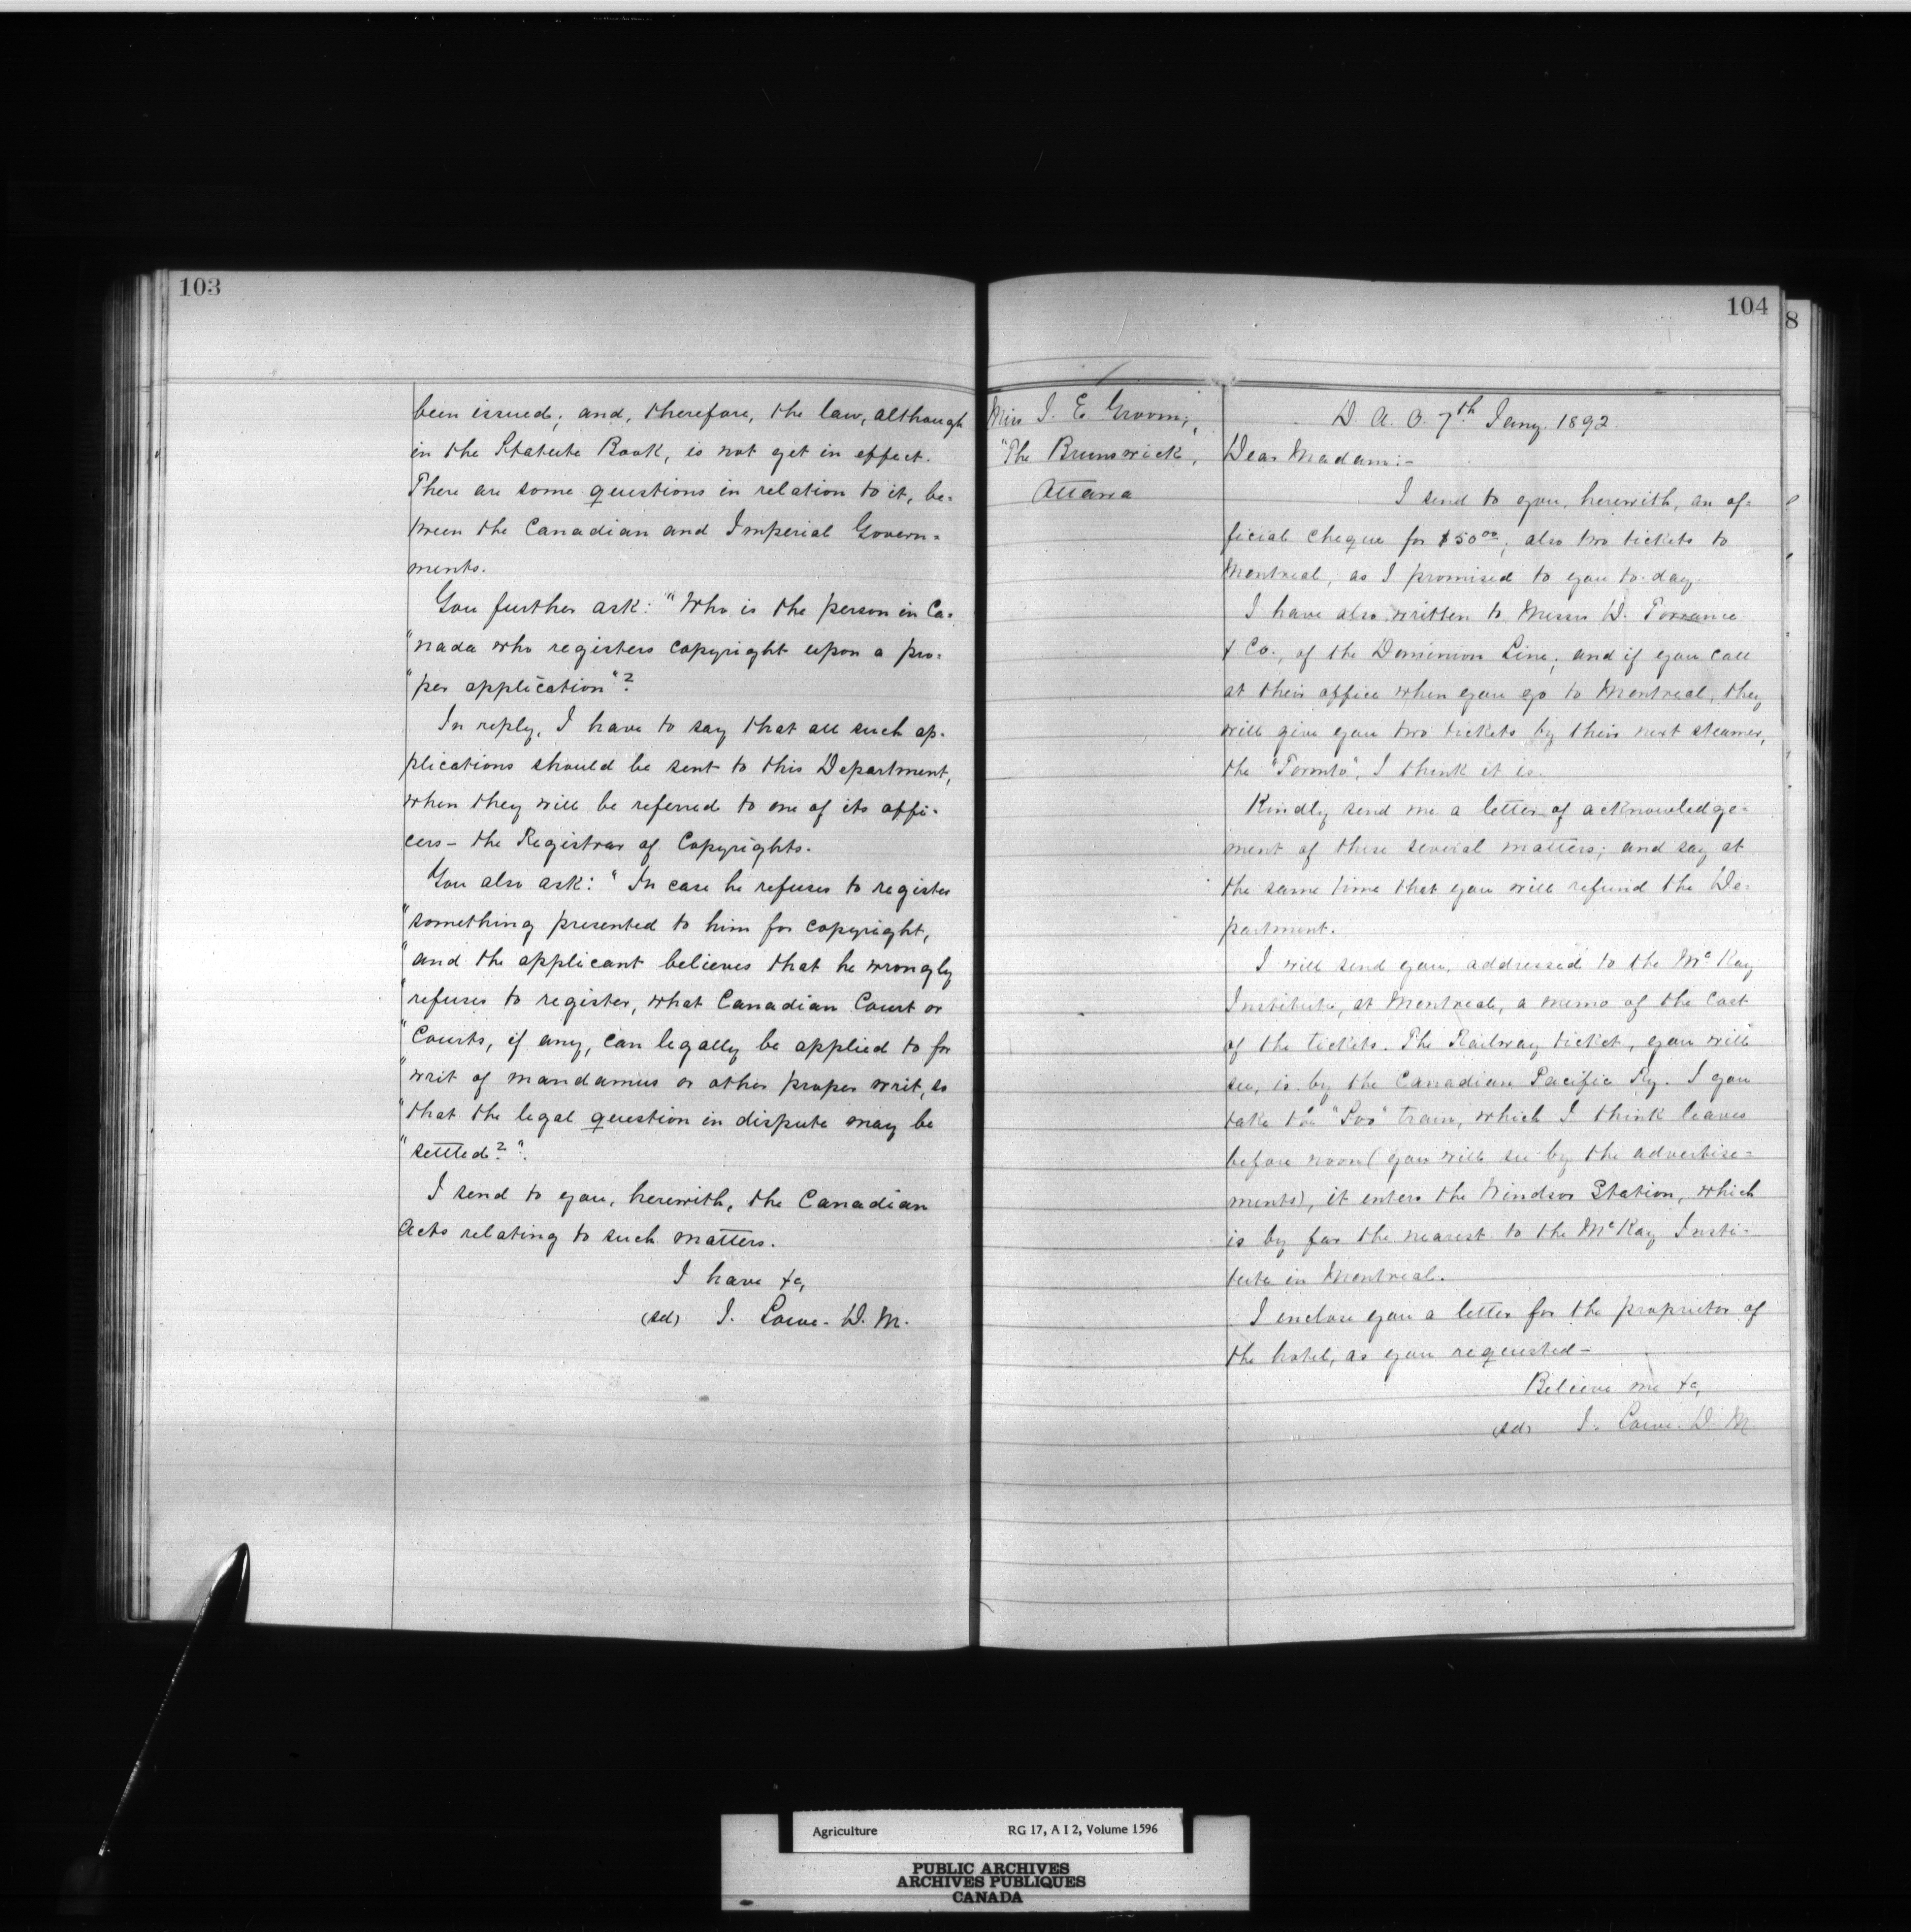 103
been issued; and, therefore, the law, although
in the Statute Book, is not yet in effect.
There are some questions in relation to it, be=
tween the Canadian and Imperial Govern=
ments.
You further ask: "Who is the person in Ca=
"nada who registers copyright upon a pro=
"per application"?
In reply, I have to say that all such ap=
plications should be sent to this Department,
when they will be referred to one of its offi=
cers - the Registrar of Copyrights.
You also ask: "In case he refuses to register
"something presented to him for copyright,
"and the applicant believes that he wrongly
"refuses to register, what Canadian Court or
"Courts, if any, can legally be applied to for
"writ of mandamus or other proper writ, so
"that the legal question in dispute may be
"settled?".
I send to you, herewith, the Canadian
Acts relating to such matters.
I have &c,
(sd) J. Lowe. D. M.
104
8
Miss J. E. Groom,
"The Brunswick,
Ottawa
D. A. O. 7th Jany. 1892.
Dear Madam:-
I send to you, herewith, an of=
ficial cheque for $50 00; also two tickets to
Montreal, as I promised to you to-day.
I have also written to Messrs D. Torrance
& Co., of the Dominion Line; and if you call
at their office when you go to Montreal, they
will give you two tickets by their next steamer,
the "Toronto", I think it is.
Kindly send me a letter of acknowledge=
ment of these several matters; and say at
the same time that you will refund the De=
partment.
I will send you, addressed to the McKay
Institute, at Montreal, a memo of the cost
of the tickets. The Railway ticket, you will
see, is by the Canadian Pacific Ry. I you
take the "Soo" train, which I think leaves
before noon (you will see by the advertise=
ments), it enters the Windsor Station, which
is by far the nearest to the McKay Insti=
tute in Montreal.
I enclose you a letter for the proprietor of
the hotel, as you requested -
Believe me &c,
(sd) J. Lowe. D. M
Agriculture RG 17, A I 2, Volume 1596
PUBLIC ARCHIVES
ARCHIVES PUBLIQUES
CANADA